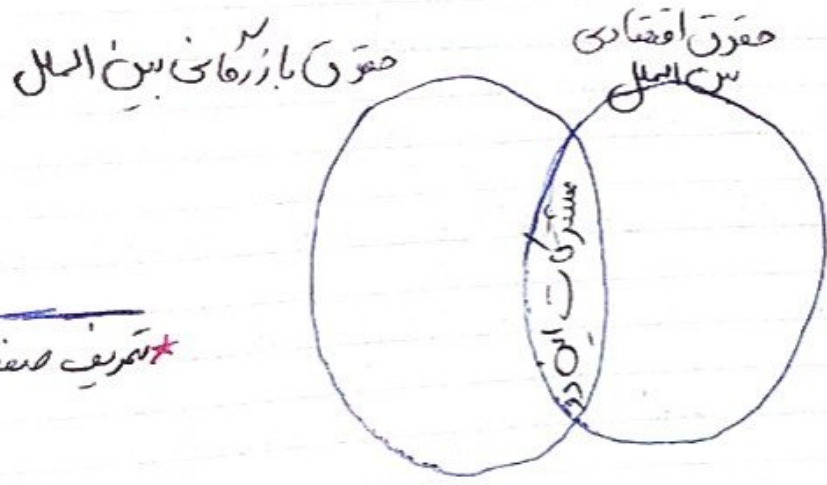 حقوق اقتصادی
بین الملل
حقوق بازرگانی بین الملل
مشترکات این دو
*تعریف